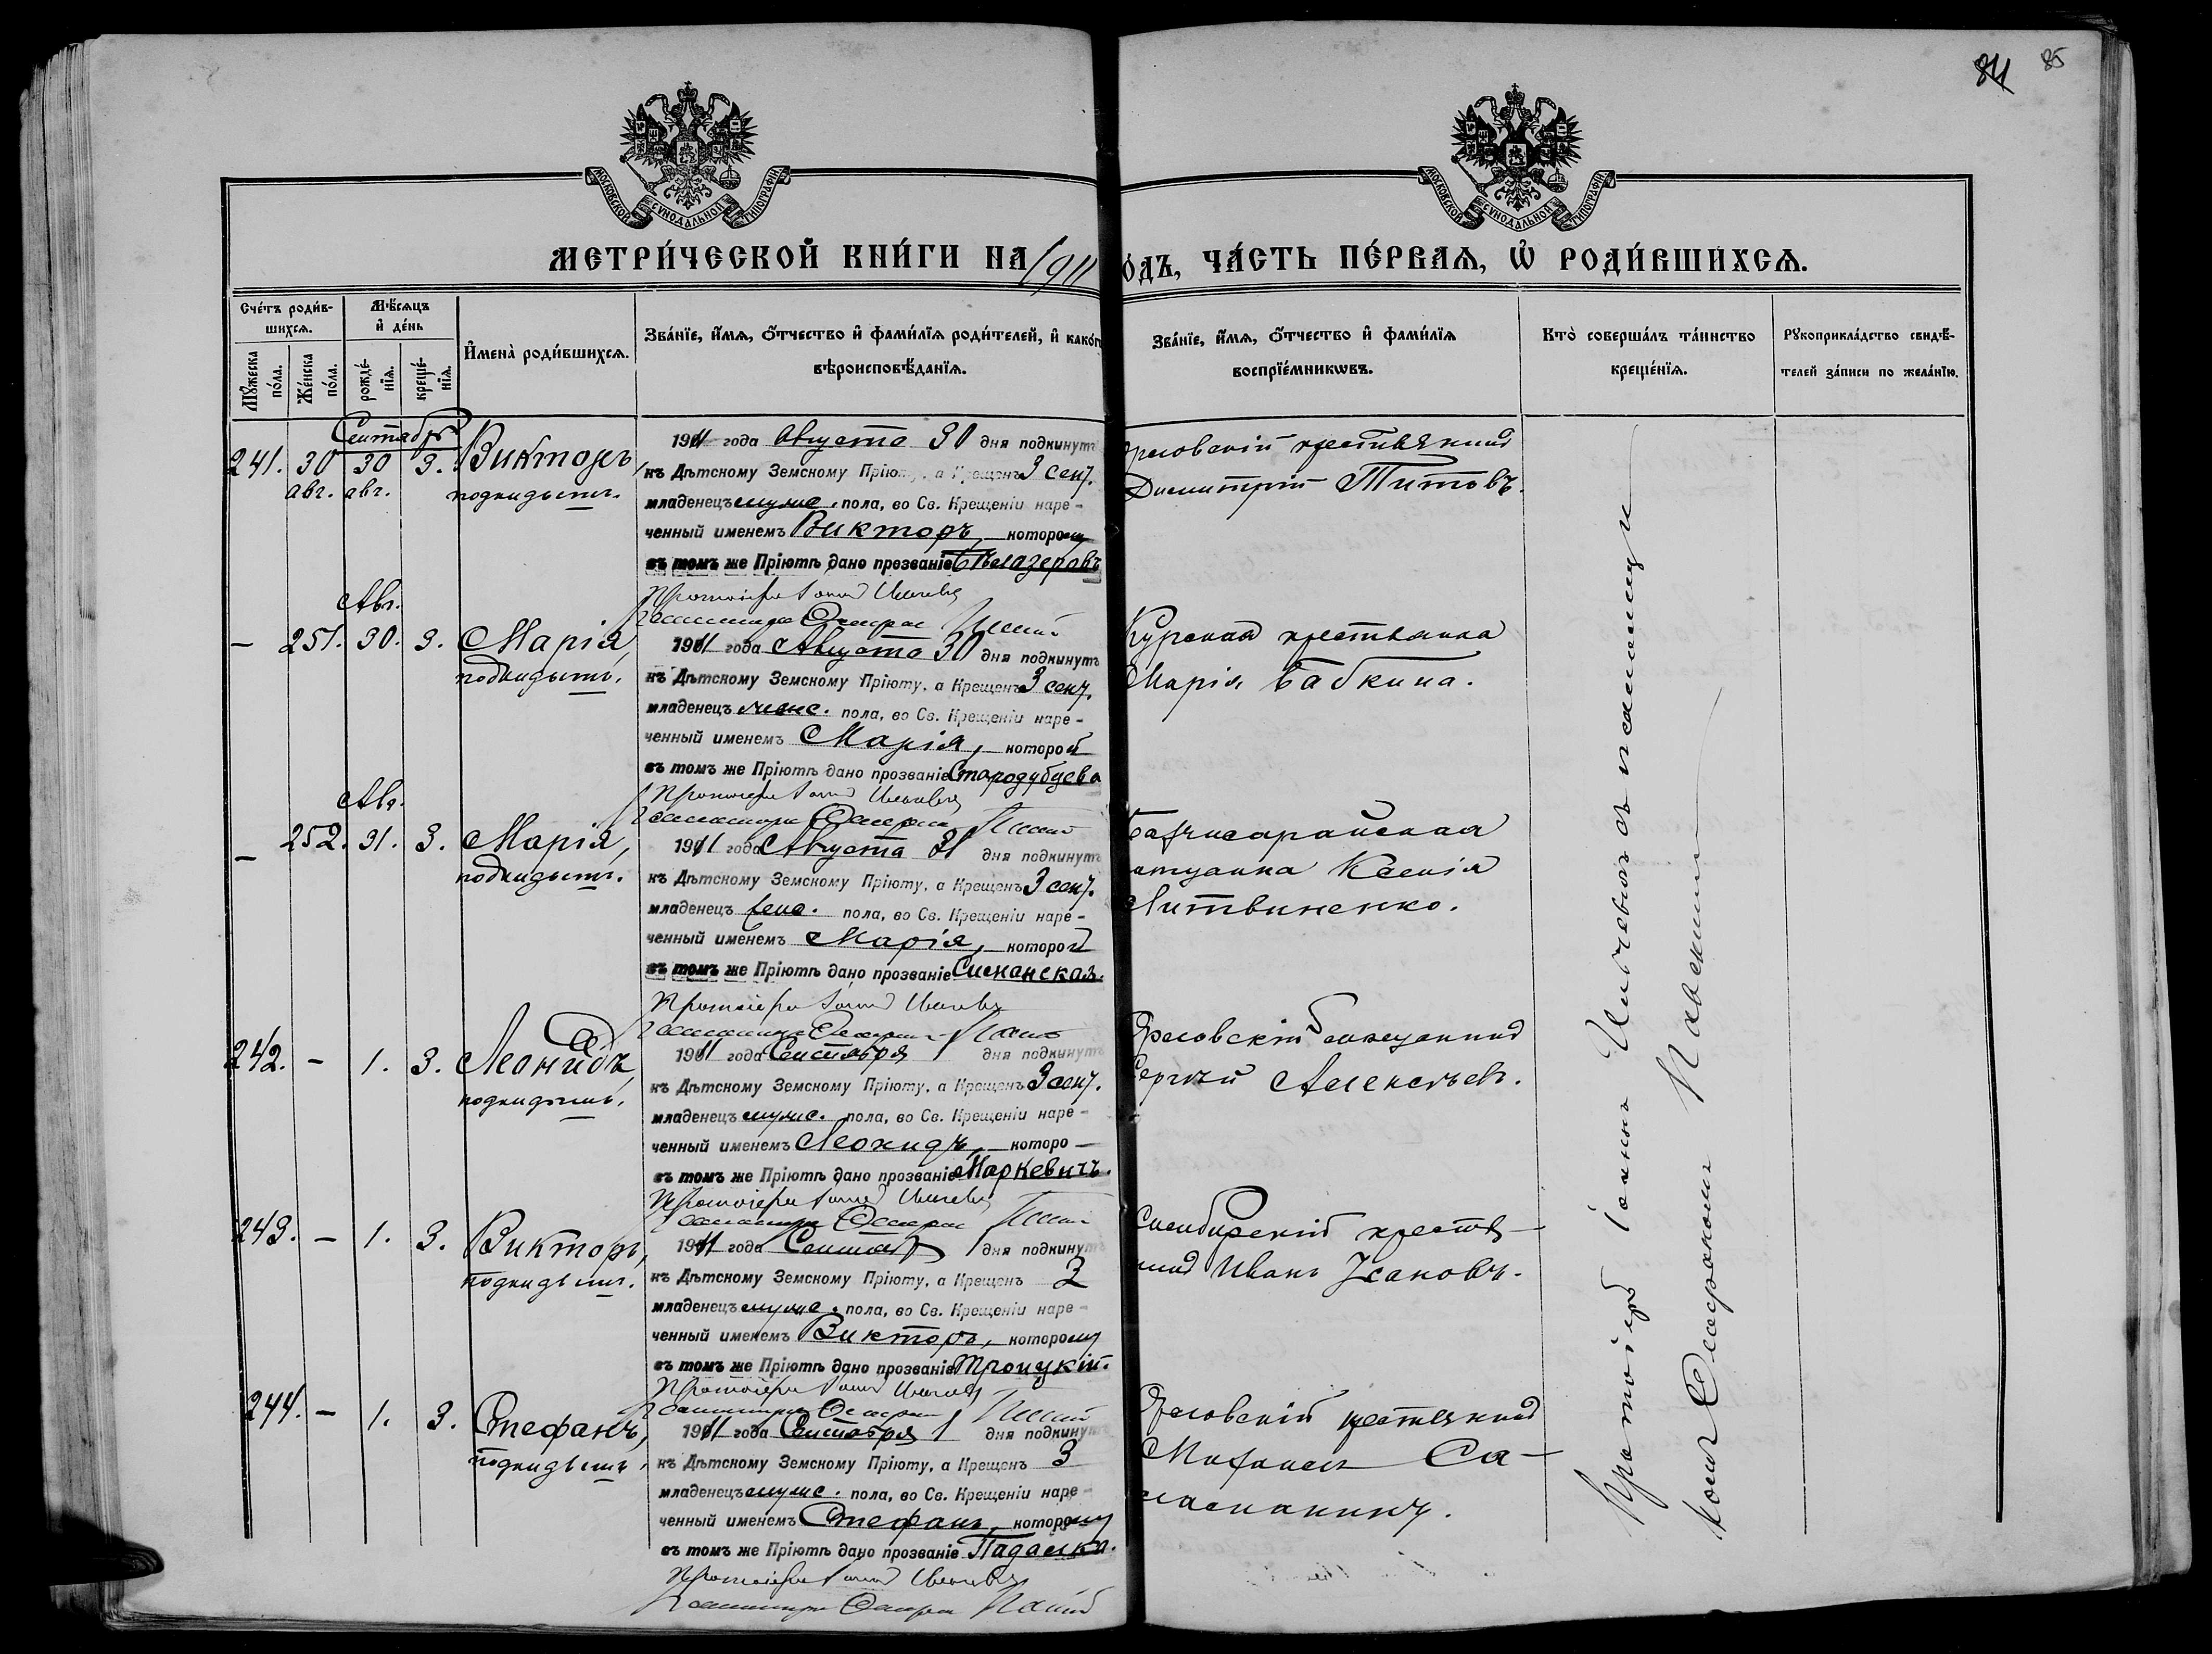 84 85
МОСКОВСКОЙ СѴНОДАЛЬНОЙ ТИПОГРАФІИ
МОСКОВСКОЙ СѴНОДАЛЬНОЙ ТИПОГРАФІИ
МЕТРИ́ЧЕСКОЙ КНИ́ГИ НА 1911
О́ДЪ, ЧА́СТЬ ПЕ́РВАѦ, Ѡ҆ РОДИ́ВШИХСѦ.
Сче́тъ роди́в-
шихсѧ.
Мꙋ́жеска
по́ла.
Же́нска
по́ла.
Мѣ́сѧцъ
и҆ де́нь
рожде́-
нїѧ.
креще́-
нїѧ.
И҆мена̀ роди́вшихсѧ.
Зва́нїе, и҆́мѧ, ѻ҆́тчество и҆ фами́лїѧ роди́телей, и҆ како́г
вѣроисповѣ́данїѧ.
Зва́нїе, и҆́мѧ, ѻ҆́тчество и҆ фами́лїѧ
воспрїе́мникѡвъ.
Кто̀ соверша́лъ та́инство
креще́нїѧ.
Рꙋкоприкла́дство свидѣ́-
телей за́писи по жела́нїю.
Сентябрь
241. 30 30 3. Викторъ,
авг. авг. подкидышъ.
1911 года Августа 30 дня подкинутъ
къ Дѣтскому Земскому Пріюту, а Крещенъ 3 сент.
младенецъ муже. пола, во Св. Крещеніи наре-
ченный именемъ Викторъ, которому
въ томъ же Пріютѣ дано прозваніе
Протоіерей
крестьянинъ
Димитрій Титовъ.
Авг.
— 251. 30. 3. Марія,
подкидышъ.
1911 года Августа 30 дня подкинутъ
къ Дѣтскому Земскому Пріюту, а Крещенъ 3 сент.
младенецъ женс. пола, во Св. Крещеніи наре-
ченный именемъ Марія, которой
въ томъ же Пріютѣ дано прозваніе Стародубцева
Протоіерей
Курская крестьянка
Марія Бабкина.
Авг.
— 252. 31. 3. Марія,
подкидышъ.
1911 года Августа 31 дня подкинутъ
къ Дѣтскому Земскому Пріюту, а Крещенъ 3 сент.
младенецъ жене. пола, во Св. Крещеніи наре-
ченный именемъ Марія, которой
въ томъ же Пріютѣ дано прозваніе
Протоіерей
Бахчисарайская
Ксенія
Литвиненко.
242. — 1. 3. Леонидъ,
подкидышъ.
1911 года Сентября 1 дня подкинутъ
къ Дѣтскому Земскому Пріюту, а Крещенъ 3 сент.
младенецъ мужс. пола, во Св. Крещеніи наре-
ченный именемъ Леонидъ, которо —
въ томъ же Пріютѣ дано прозваніе Маркевичъ.
Протоіерей
Сергѣй Алексѣевъ.
243. — 1. 3. Викторъ,
подкидышъ.
1911 года Сентяб 1 дня подкинутъ
къ Дѣтскому Земскому Пріюту, а Крещенъ 3
младенецъ мужс. пола, во Св. Крещеніи наре-
ченный именемъ Викторъ, которому
въ томъ же Пріютѣ дано прозваніе Троицкій.
Протоіерей
Симбирскій крестья—
нинъ Иванъ
244. — 1. 3. Стефанъ,
подкидышъ.
1911 года Сентября 1 дня подкинутъ
къ Дѣтскому Земскому Пріюту, а Крещенъ 3
младенецъ мужс. пола, во Св. Крещеніи наре-
ченный именемъ Стефанъ, которому
въ томъ же Пріютѣ дано прозваніе Падалка.
Протоіерей
крестьянинъ
Михаилъ Са—
Протоіерей Іоаннъ съ псаломщи
комъ